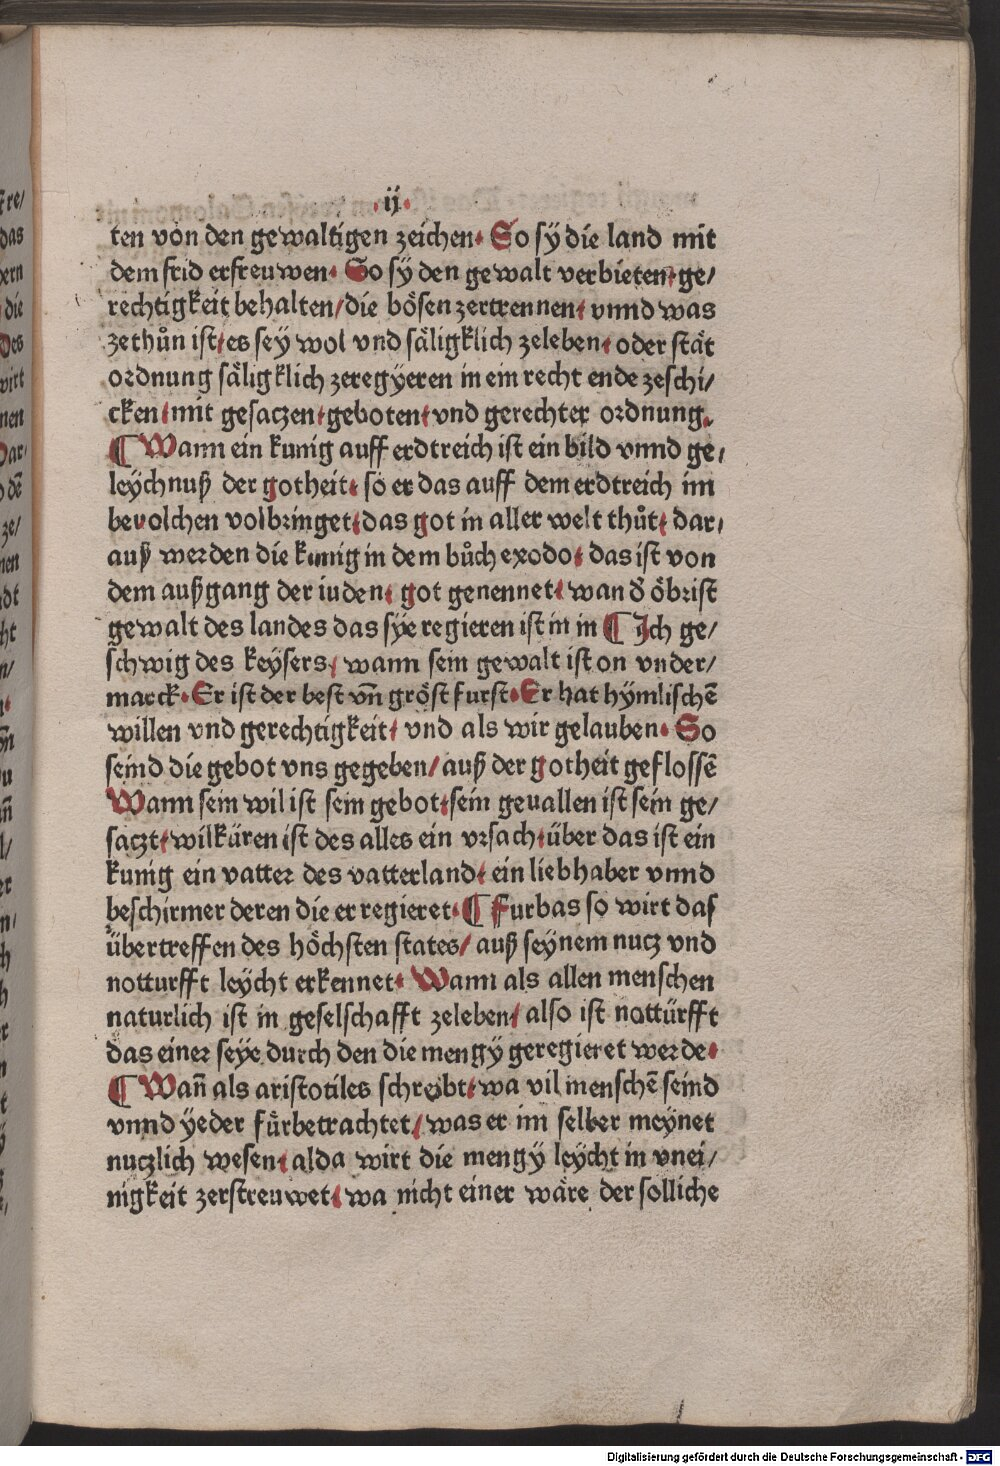 ·ij·
ten von den gewaltigen zeichen. So sÿ die land mit
dem frid erfreuwen. So sÿ den gewalt verbieten. ge/
rechtigkeit behalten/die bösen zertrennen. vnnd was
zethůn ist. es seÿ wol vnd säligklich zeleben. oder stät
ordnung säligklich zeregÿeren in ein recht ende zeschi/
cken. mit gesaczen. geboten. vnd gerechter ordnung.
¶ Wann ein kunig auff erdtreich ist ein bild vnnd ge/
leÿchnuß der gotheit. so er das auff dem erdtreich im
beuolchen volbringet. das got in aller welt thůt. dar/
auß werden die kunig in dem bůch exodo. das ist von
dem außgang der iuden. got genennet. wan d̕ öbrist
gewalt des landes das sÿe regieren ist in in ¶ Jch ge/
schwig des keÿsers. wann sein gewalt ist on vnder/
marck. Er ist der best vn̄ gröst furst. Er hat hÿmlischē
willen vnd gerechtigkeit. vnd als wir gelauben. So
seind die gebot vns gegeben/auß der gotheit geflossē
Wann sein wil ist sein gebot. sein geuallen ist sein ge/
saczt. wilküren ist des alles ein vrsach. über das ist ein
kunig ein vatter des vatterland. ein liebhaber vnnd
beschirmer deren die er regieret. ¶ Furbas so wirt das
übertreffen des höchsten states/ auß seÿnem nucz vnd
notturfft leÿcht erkennet. Wann als allen menschen
naturlich ist in geselschafft zeleben/ also ist nottürfft
das einer seÿe durch den die mengÿ geregieret werde.
¶ Wan̄ als aristotiles schreibt. wa vil menschē seind
vnnd ÿeder fürbetrachtet/ was er im selber meÿnet
nuczlich wesen. alda wirt die mengÿ leÿcht in vnei/
nigkeit zerstreuwet. wa nicht einer wäre der solliche
Digitalisierung gefördert durch die Deutsche Forschungsgemeinschaft - DFG